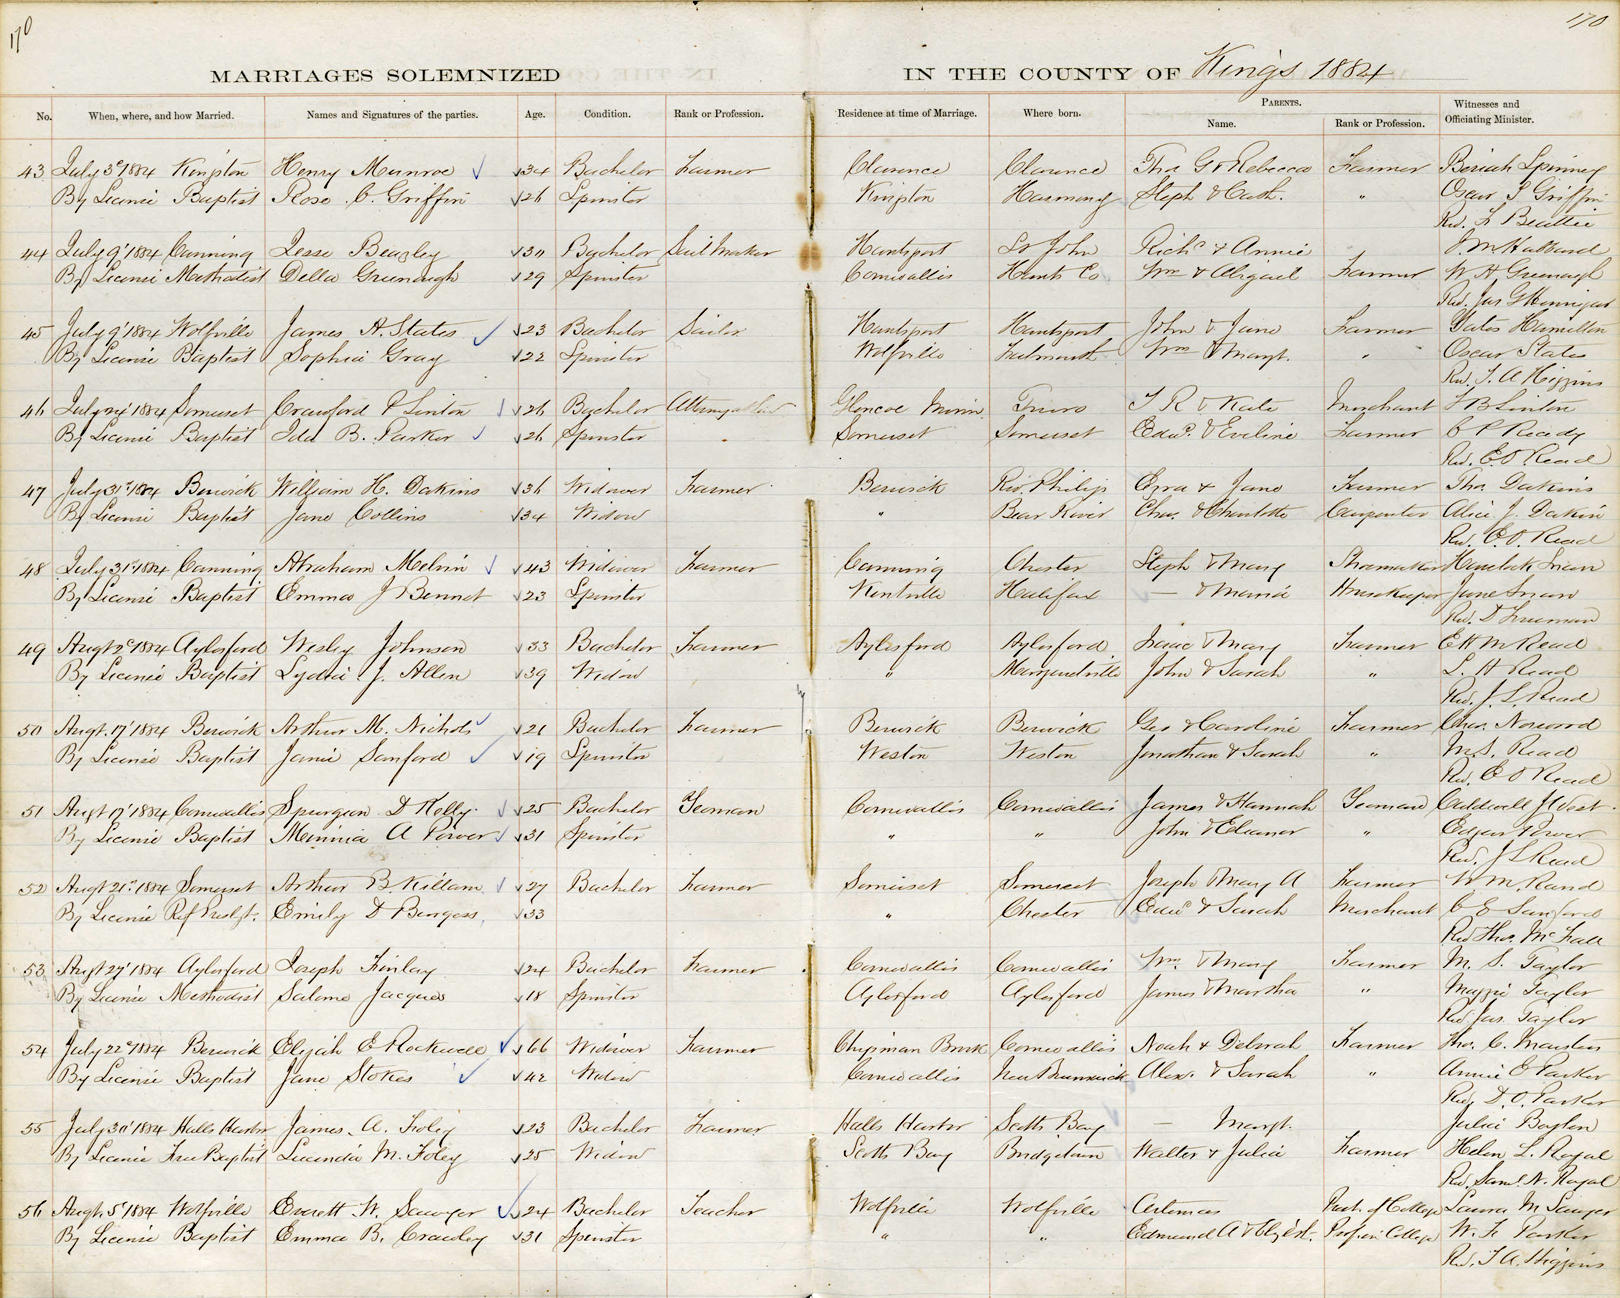 170
170
MARRIAGES SOLEMNIZED IN THE COUNTY OF Kings 1884
No. When, where, and how Married. Names and Signatures of the parties. Age. Condition. Rank or Profession. Residence at time of Marriage. Where born. PARENTS. Name. Rank or Profession. Witnesses and Officiating Minister.
43 July 3d 1884 Kingston Henry Munroe 34 Bachelor Farmer Clarence Clarence Thos G & Rebecca Farmer Beriah Spinney
By License Baptist Rose C. Griffin 26 Spinster Kingston Harmony Steph & Cath. " Oscar S Griffin
Rev. F Beattie
44 July 9' 1884 Canning Jesse Beazley 30 Bachelor Sail Maker Hantsport St John Richd & Annie J. M. Hubbard
By License Methodist Della Greenough 29 Spinster Cornwallis Hants Co Wm & Abigail Farmer W H Greenough
Rev. Jas G Hennigar
45 July 9' 1884 Wolfville James A. States 23 Bachelor Sailor Hantsport Hantsport John & Jane Farmer Yates Hamilton
By License Baptist Sophia Gray 22 Spinster Wolfville Falmouth Wm & Margt. " Oscar States
Rev. T. A Higgins
46 July 24' 1884 Somerset Crawford P Linton 26 Bachelor Attorney at Law Glencoe Minn. Truro J R & Kate Merchant F B Linton
By License Baptist Ida B. Parker 26 Spinster Somerset Somerset Edwd. & Eveline Farmer C P Ready
Rev. E. O Read
47 July 31st 1884 Berwick William H. Dakins 36 Widower Farmer Berwick Rev. Philips Ezra & Jane Farmer Thos Dakins
By License Baptist Jane Collins 34 Widow " Bear River Chas. & Charlotte Carpenter Alice J. Dakin
Rev. E. O. Read
48 July 31st 1884 Canning Abraham Melvin 43 Widower Farmer Canning Chester Steph & Mary Shoemaker Havelock
By License Baptist Emma J Bennet 23 Spinster Kentville Halifax — & Maria Housekeeper Jane
Rev. D Freeman
49 Augt 2d 1884 Aylesford Wesley Johnson 33 Bachelor Farmer Aylesford Aylesford Isaac & Mary Farmer Ett M Read
By License Baptist Lydia J. Allen 39 Widow " Margaretville John & Sarah " L. A Read
Rev. J. L. Read
50 Augt. 17' 1884 Berwick Arthur M. Nichols 21 Bachelor Farmer Berwick Berwick Geo & Caroline Farmer Chas. Norwood
By License Baptist Janie Sanford 19 Spinster Weston Weston Jonathan & Sarah " M. S. Read
Rev. E O Read
51 Augt 17' 1884 Cornwallis Spurgeon D Kelly 25 Bachelor Yeoman Cornwallis Cornwallis James & Hannah Yeoman Caldwell
By License Baptist Minnie A Power 31 Spinster " " John & Eleanor " Edgar Power
Rev. J L Read
52 Augt 21st 1884 Somerset Arthur B Killam 27 Bachelor Farmer Somerset Somerset Joseph & Mary A Farmer W M. Rand
By License Ref Presbyt. Emily D Burgess 33 " Chester Edwd & Sarah Merchant C E Sanford
Rev Thos. McFall
53 Augt 27' 1884 Aylesford Joseph Finlay 24 Bachelor Farmer Cornwallis Cornwallis Wm. & Mary Farmer M. S. Taylor
By License Methodist Salome Jacques 18 Spinster Aylesford Aylesford James & Marsha " Maggie Taylor
Rev. Jas. Taylor
54 July 22d 1884 Berwick Elijah E Rockwell 66 Widower Farmer Chipman Brook Cornwallis Noah & Deborah Farmer Thos. C. Masters
By License Baptist Jane Stokes 42 Widow Cornwallis New Brunswick Alex. & Sarah " Annie E Parker
Rev. D. O. Parker
55 July 30' 1884 Halls Harbor James A. Foley 23 Bachelor Farmer Halls Harbor Scotts Bay — Margt. Julia
By License Free Baptist Lucinda M. Foley 25 Widow Scotts Bay Bridgetown Walter & Julia Farmer Helen L. Royal
Rev. Saml. N. Royal
56 Augt. 5' 1884 Wolfville Everett W. Sawyer 24 Bachelor Teacher Wolfville Wolfville Artemas Prest. of College Laura M Sawyer
By License Baptist Emma B. Crawley 31 Spinster " " Edmund A & Profsr. College W. F. Parker
Rev. T. A. Higgins